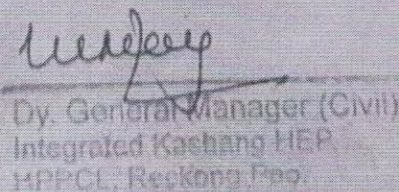 Dy. General Manager (Civil)
Integrated Kashang HEP
HPPCL, Reckong Peo